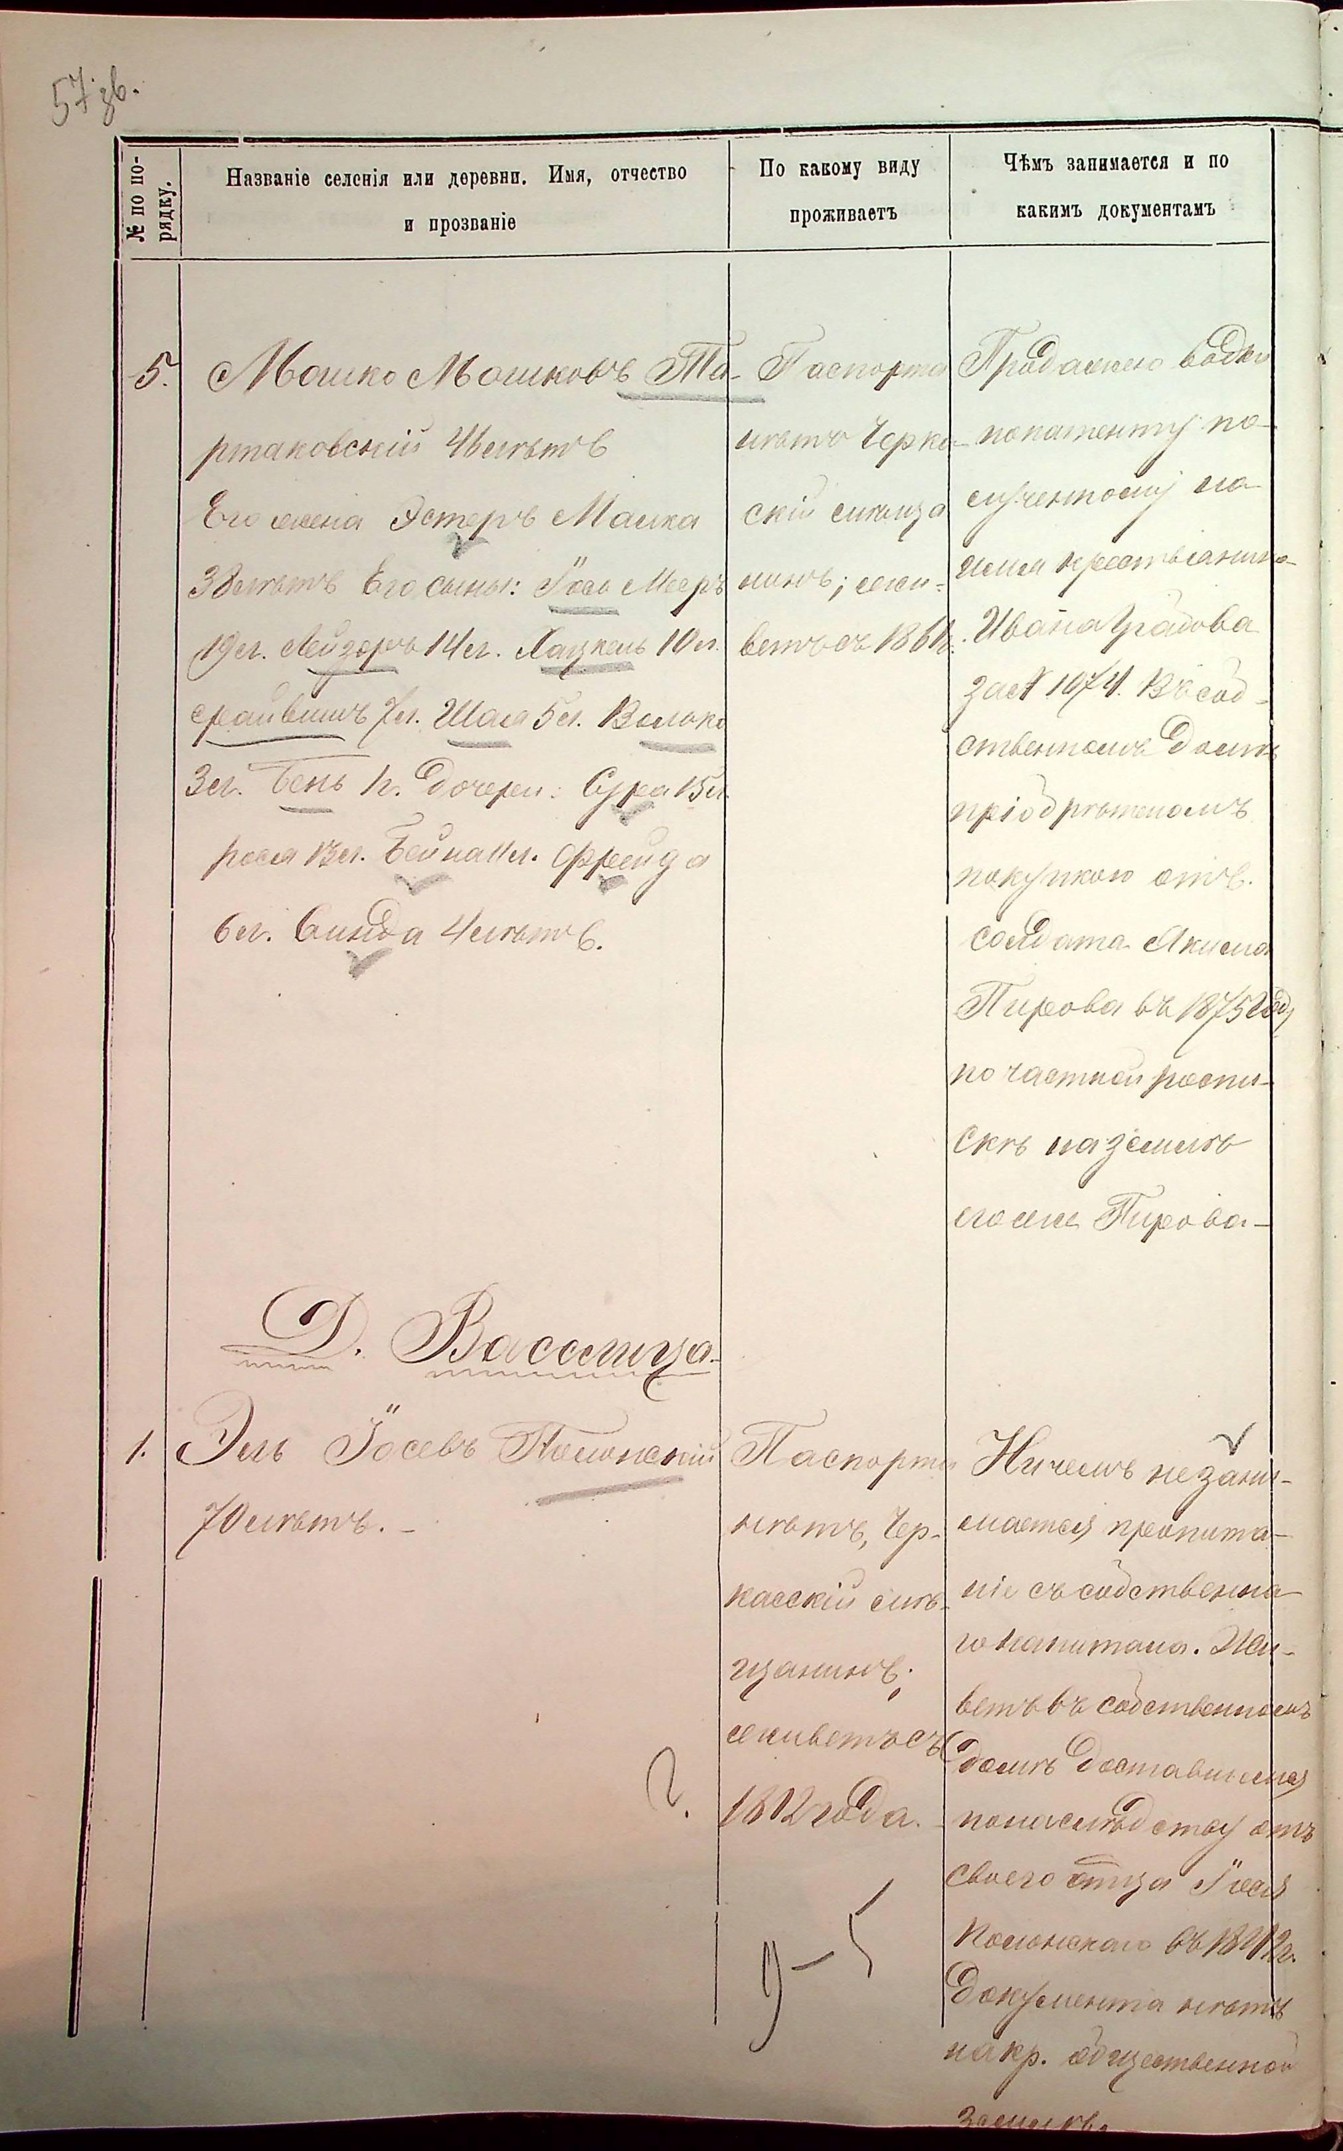 57 зв.
№ по по-
рядку.
Названіе селенія или деревни. Имя, отчество
и прозваніе
По какому виду
проживаетъ
Чѣмъ занимается и по
какимъ документамъ
5.
Мошко Мошковъ Та-
ртаковскій 41 лѣтъ
Его жена Эстеръ Малка
38 лѣтъ Его сыны: Іось Мееръ
19 л. Лейзоръ 14 л. Хацкель 10 л.
7 л. Шая 5 л. Волько
3 л. Бень 1 г. Дочери: Сура 15 л.
13 л. Бейла 11 л. Фрейда
6 л. 4 лѣтъ.
Паспорта
нѣтъ Черка-
скій мѣща
нинъ; жи-
ветъ съ 1861 г.
Продажею водки
по патенту по-
лученному на
имя крестьянина
Ивана
за № 1074. Въ соб-
ственномъ домѣ
пріобрѣтеномъ
покупкою отъ
солдата Якима
Пирова въ 1875 году
по частной роспи-
скѣ на землѣ
его же Пирова-
Д. Васлица.
1.
Эль Іосевъ Полонскій
70 лѣтъ. -
Паспорта
нѣтъ, Чер-
касскій мѣ-
щанинъ;
живетъ съ
1812 года.
Ничемъ не зани-
мается пропита-
ніе съ собственна-
го капитала. Жи-
ветъ въ собственномъ
домѣ доставшемся
по наслѣдству отъ
своего отца Іося
Полонскаго въ 1842 г.
Документа нѣтъ
на кр. общественной
землѣ.
2.
9-5